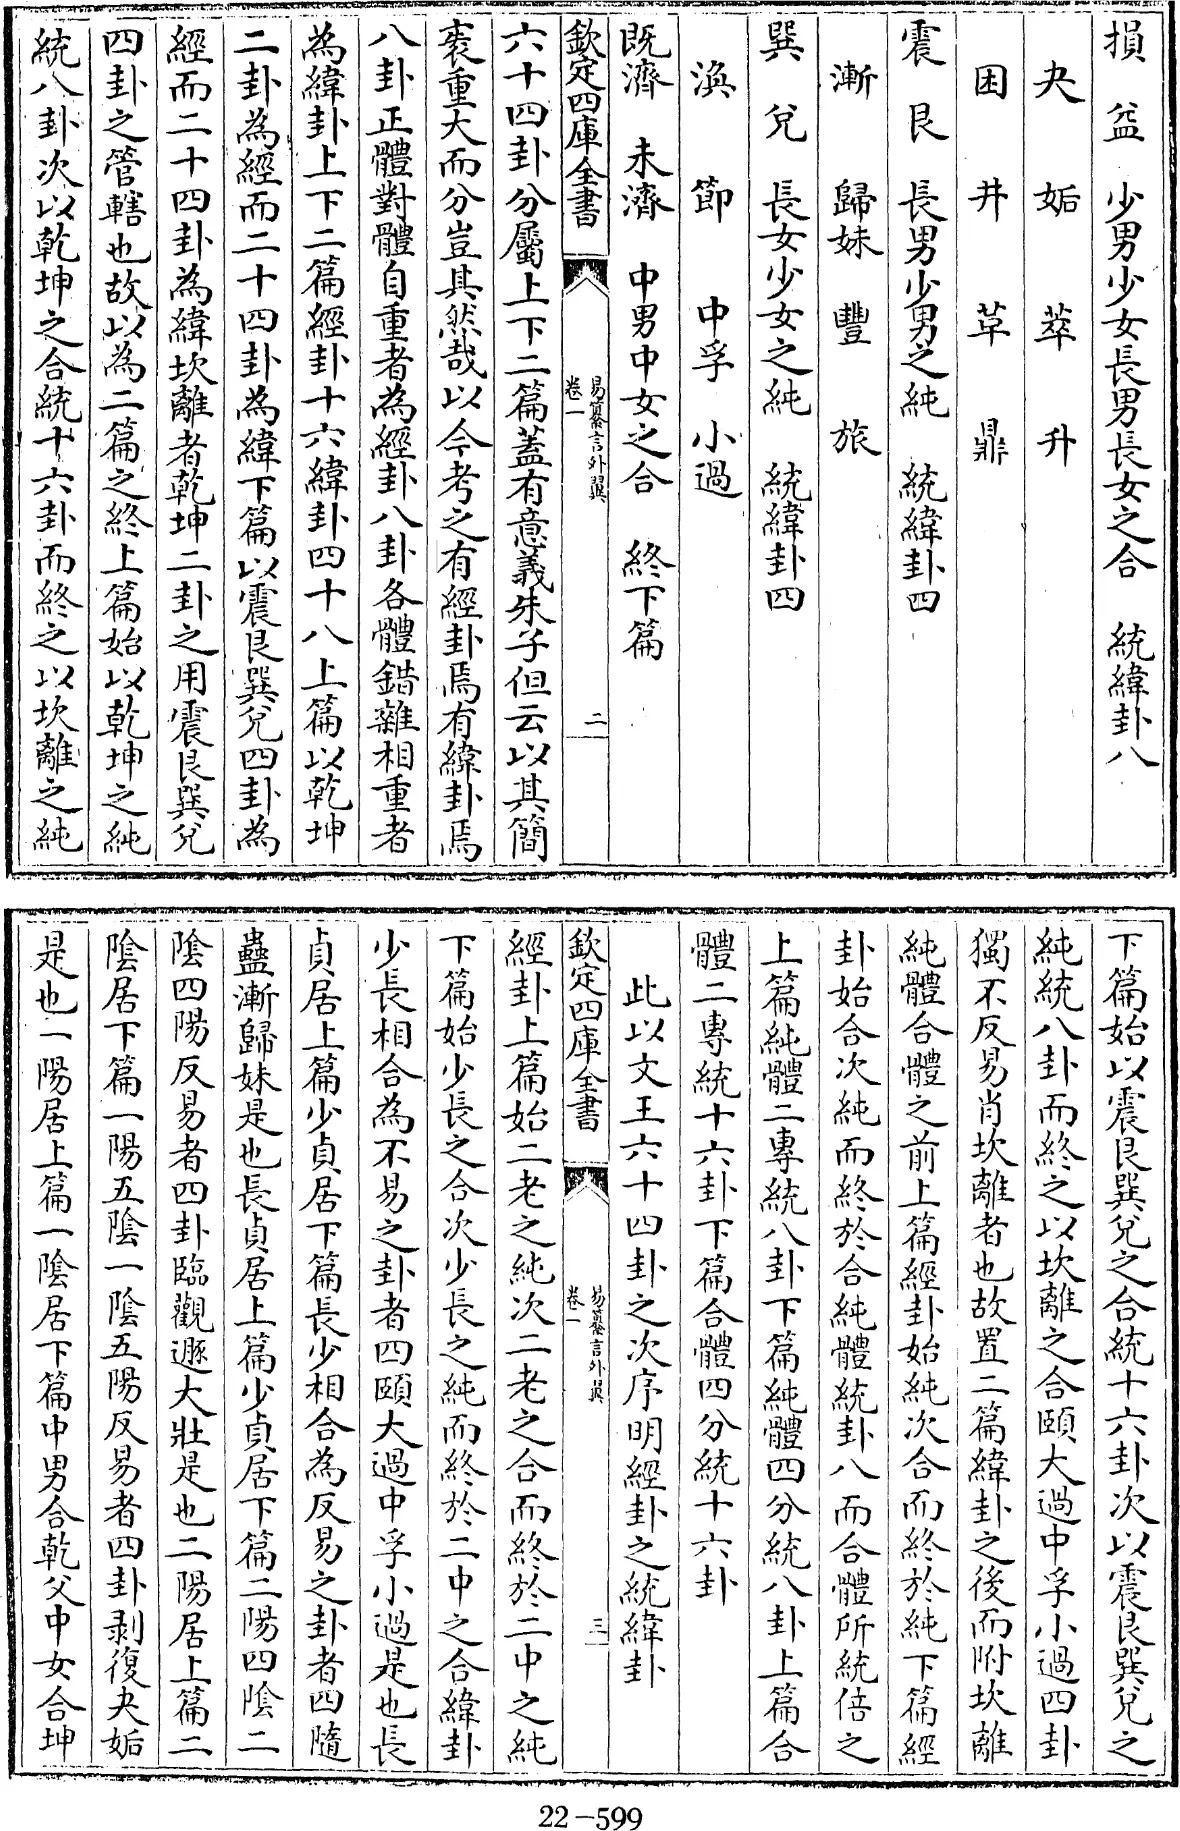 損　益　少男少女長男長女之合　統緯卦八
夬　姤　萃　升
困　井　革　鼎
震　艮　長男少男之純　統緯卦四
漸　歸妹　豐　旅
巽　兌　長女少女之純　統緯卦四
渙　節　中孚　小過
既濟　未濟　中男中女之合　終下篇
欽定四庫全書　易纂言外翼　卷一　二
六十四卦分屬上下二篇蓋有意義朱子但云以其簡
袠重大而分豈其然哉以今考之有經卦焉有緯卦焉
八卦正體對體自重者為經卦八卦各體錯雜相重者
為緯卦上下二篇經卦十六緯卦四十八上篇以乾坤
二卦為經而二十四卦為緯下篇以震艮巽兌四卦為
經而二十四卦為緯坎離者乾坤二卦之用震艮巽兌
四卦之管轄也故以為二篇之終上篇始以乾坤之純
統八卦次以乾坤之合統十六卦而終之以坎離之純
下篇始以震艮巽兌之合統十六卦次以震艮巽兌之
純統八卦而終之以坎離之合頤大過中孚小過四卦
獨不反易肖坎離者也故置二篇緯卦之後而附坎離
純體合體之前上篇經卦始純次合而終於純下篇經
卦始合次純而終於合純體統卦八而合體所統倍之
上篇純體二專統八卦下篇純體四分統八卦上篇合
體二專統十六卦下篇合體四分統十六卦
此以文王六十四卦之次序明經卦之統緯卦
欽定四庫全書　易纂言外翼　卷一　三
經卦上篇始二老之純次二老之合而終於二中之純
下篇始少長之合次少長之純而終於二中之合緯卦
少長相合為不易之卦者四頤大過中孚小過是也長
貞居上篇少貞居下篇長少相合為反易之卦者四隨
蠱漸歸妹是也長貞居上篇少貞居下篇二陽四陰二
陰四陽反易者四卦臨觀遯大壯是也二陽居上篇二
陰居下篇一陽五陰一陰五陽反易者四卦剥復夬姤
是也一陽居上篇一陰居下篇中男合乾父中女合坤
22-599